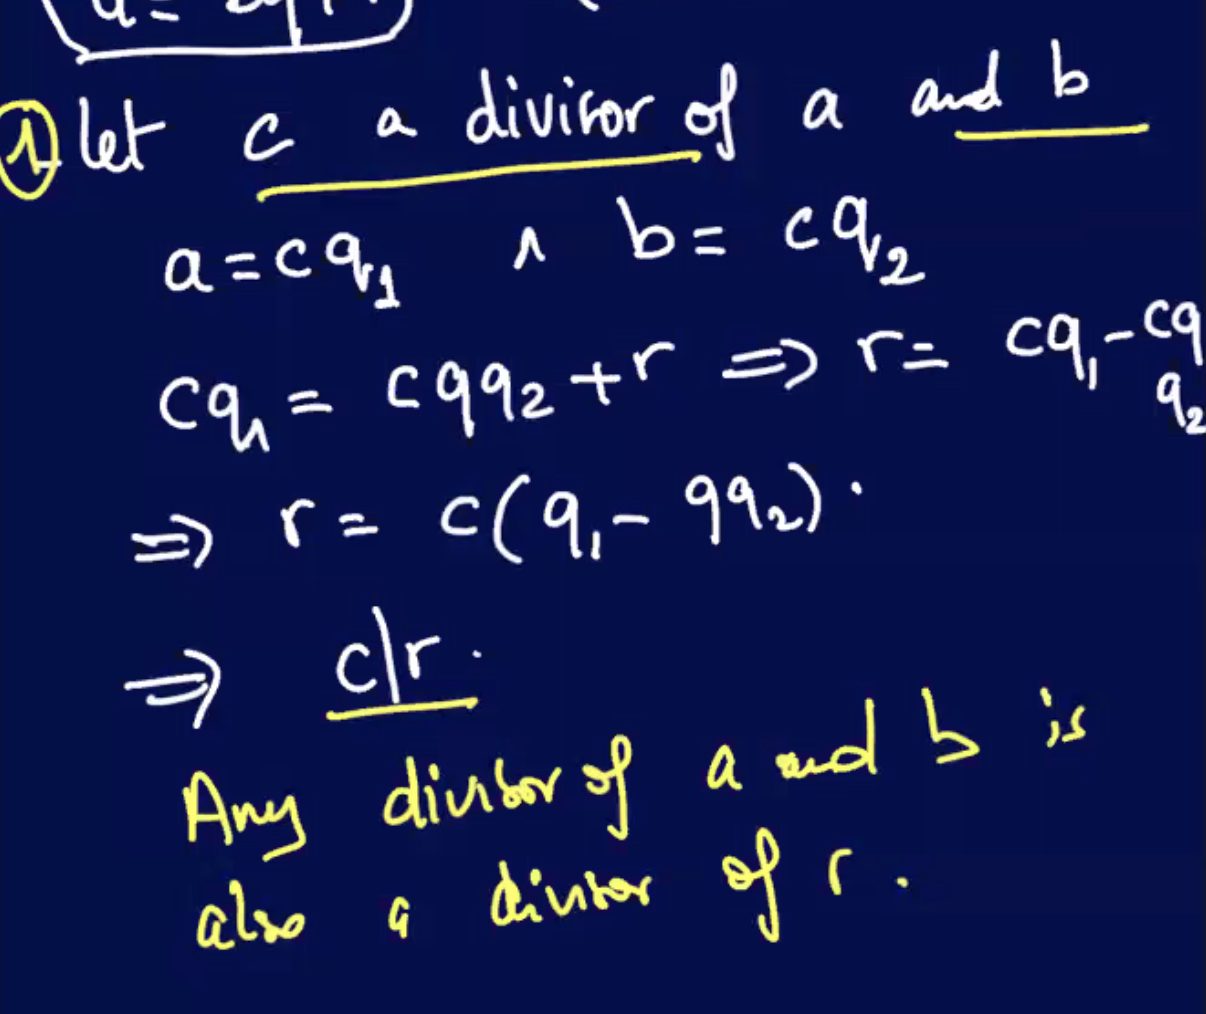 ① let c a divisor of a and b
a = cq₁ ∧ b = cq₂
cq₁ = cqq₂ + r ⇒ r = cq₁ - cq q₂
⇒ r = c(q₁ - qq₂).
⇒ c|r.
Any divisor of a and b is
also a divisor of r.